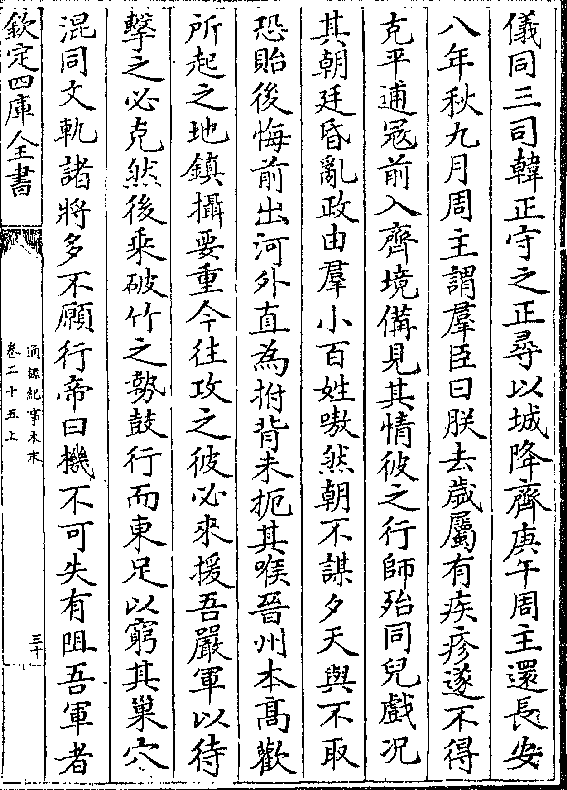 儀同三司韓正守之正尋以城降齊庚午周主還長安
八年秋九月周主謂羣臣曰朕去歲屬有疾疹遂不得
克平逋冦前入齊境備見其情彼之行師殆同兒戲况
其朝廷昏亂政由羣小百姓嗷然朝不謀夕天與不取
恐貽後悔前出河外直為拊背未扼其喉晉州本高歡
所起之地鎮攝要重今往攻之彼必來援吾嚴軍以待
擊之必克然後乗破竹之勢鼓行而東足以窮其巢穴
混同文軌諸將多不願行帝曰機不可失有阻吾軍者
欽定四庫全書
通鑑紀事本末
卷二十五上
三十